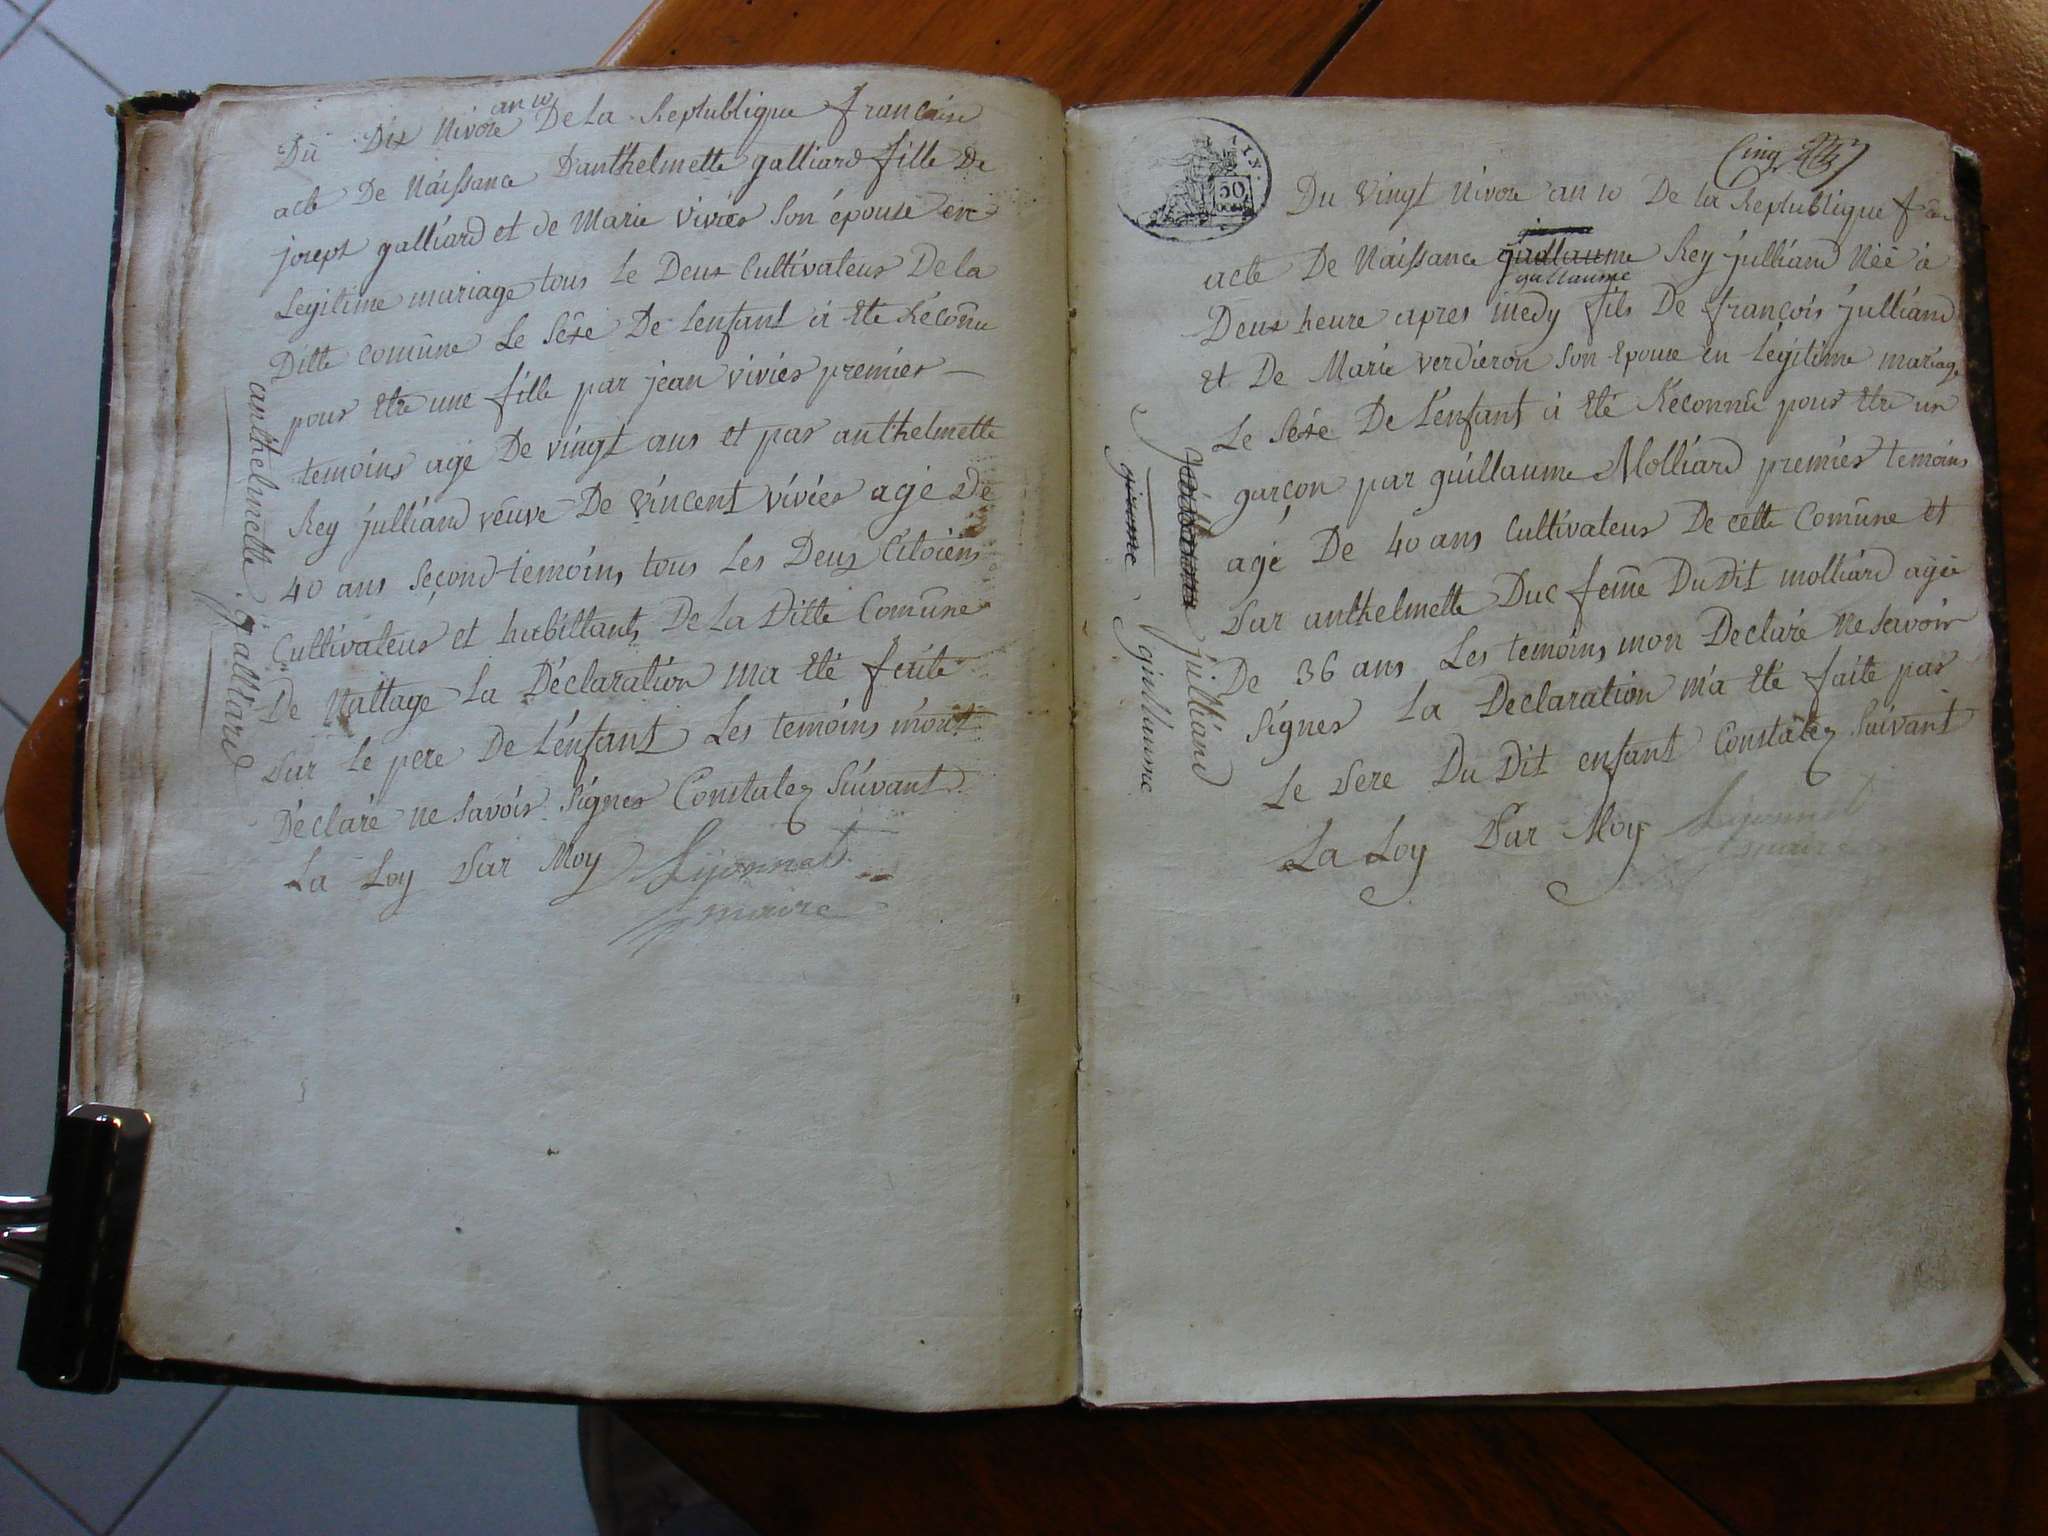 an 10
Du Dix Nivose De La Republique francaise
acte De Naissance D'anthelmette galliard fille De
joseph galliard et de Marie Vivier Son épouse en
Legitime mariage tous Le Deux Cultivateur De la
Ditte comūne Le Sexe De Lenfant à Eté Réconnu
pour Etre une fille par jean vivier premier
temoins agé De vingt ans et par anthelmette
Rey julliand veuve De Vincent vivier agé De
40 ans Second temoins tous Les Deux Citoiens
Cultivateur et habittants De La Ditte Comūne
De Nattage La Déclaration ma Eté feite
Par Le pere De L'enfant Les temoins m'ont
Déclaré ne Savoir Signer Constatez Suivant
La Loy Par Moy Lyonnet
maire
anthelmette galliard
Cinq
50
Du Vingt Nivose an 10 De La Republique
acte De Naissance guillaume Rey julliand Néé à
guillaume
Deux heure apres medy fils De françois julliand
et De Marie verdieron Son Epouse en Legitime mariage
Le Sexe De L'enfant à Eté Réconnū pour Etre un
garçon par guillaume Molliard premier temoins
agé De 40 ans Cultivateur De cette Comūne et
Par anthelmette Duc feme Du Dit molliard agée
De 36 ans Les temoins mon Declaré Ne Savoir
Signer La Declaration m'a Eté faite par
Le Pere Du Dit enfant Constatez Suivant
La Loy Par Moy Lyonnet
maire
julliand
guillaume